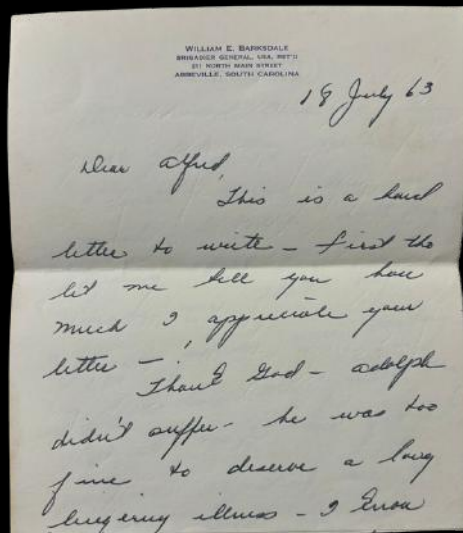 WILLIAM E. BARKSDALE
BRIGADIER GENERAL, USA, RET'D
211 NORTH MAIN STREET
ABBEVILLE, SOUTH CAROLINA
18 July 63
Dear Alfred,
This is a hard
letter to write – first the
let me tell you how
much I appreciate your
letter –
Thank God – Adolph
didn't suffer – he was too
fine to deserve a long
lingering illness – I know